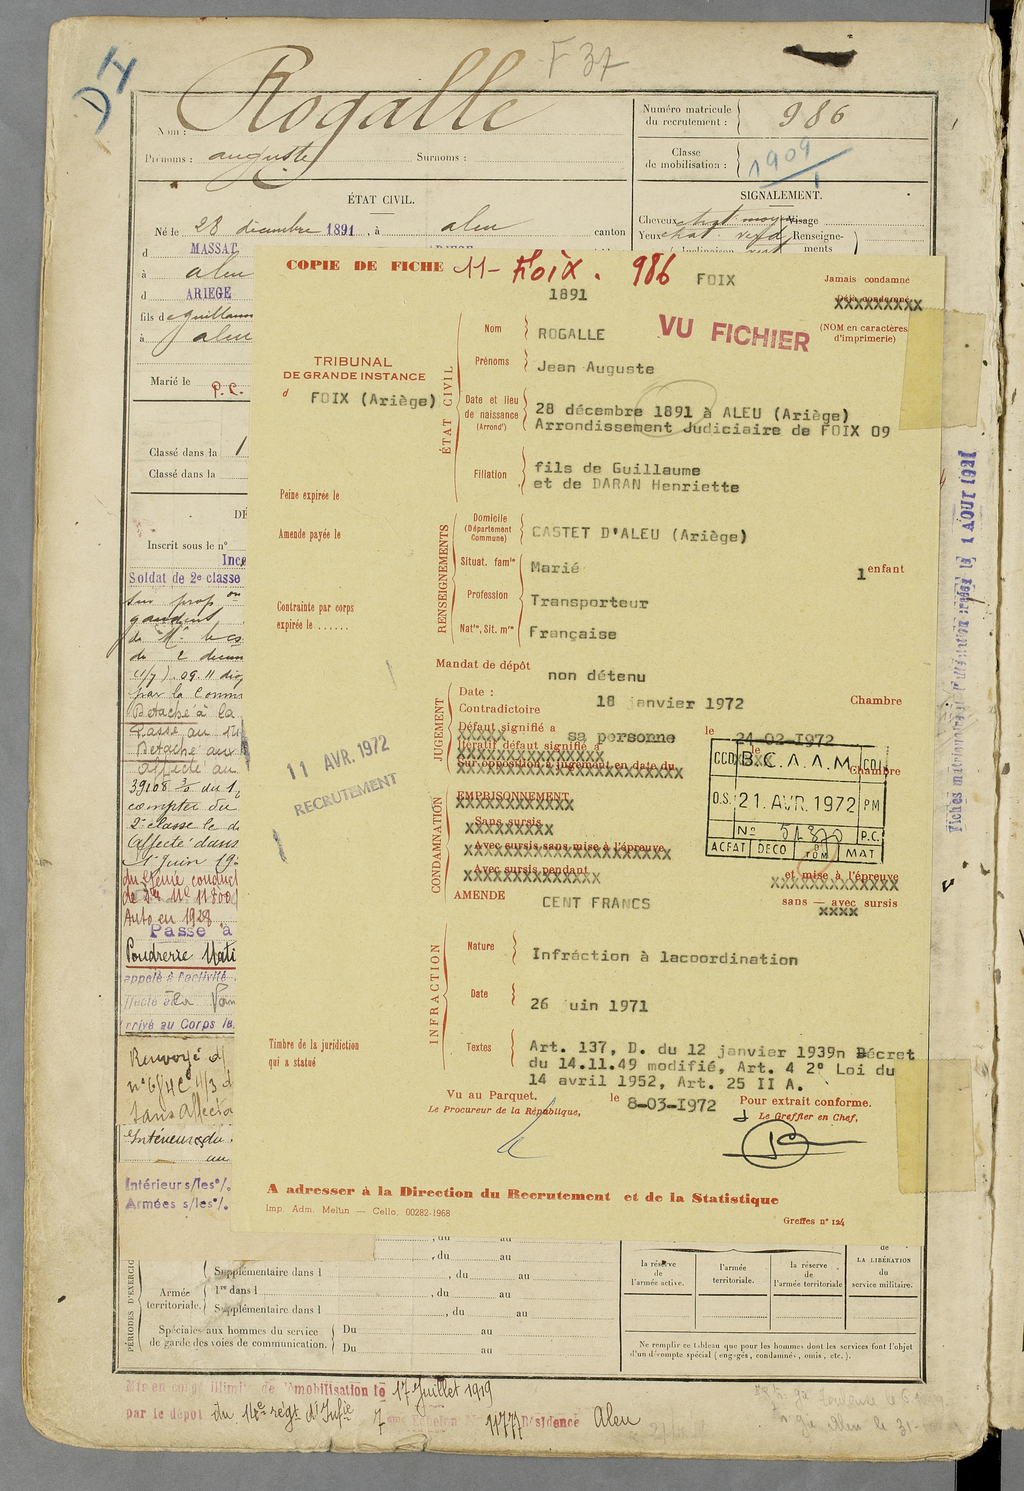 D4
F 37
Nom : Rogalle
Prénoms : auguste Surnoms :
Numéro matricule
du recrutement : 986
Classe
de mobilisation : 1909
ÉTAT CIVIL.
Né le 28 décembre 1891, à aleu canton
d MASSAT
à aleu
d ARIEGE
fils de Guillaume
à aleu
Marié le P.C.
SIGNALEMENT.
Cheveux chat. moyen Visage
Yeux chat. verd Renseigne-
ments
Classé dans la 1
Classé dans la
Inscrit sous le n°
Soldat de 2e classe
de 2 decem
par la Comm
Détaché à la
Passé au 14
Détaché aux
affecté au
39108 3/0 du 1
compter du
2e classe le d
Affecté dans
1er juin 19
Auto en 1928
Passé à
Poudrerie Nati
appelé à l'activité
Arrivé au Corps le
Renvoyé d
sans affecta
Intérieurs du
au
Intérieur s/les°/.
Armées s/les°/.
COPIE DE FICHE 11- Foix. 986 FOIX
1891
Jamais condamné
Déjà condamné
VU FICHIER
(NOM en caractères
d'imprimerie)
TRIBUNAL
DE GRANDE INSTANCE
d FOIX (Ariège)
ÉTAT CIVIL
Nom ROGALLE
Prénoms Jean Auguste
Date et lieu
de naissance
(Arrondt)
28 décembre 1891 à ALEU (Ariège)
Arrondissement Judiciaire de FOIX 09
Filiation fils de Guillaume
et de DARAN Henriette
Peine expirée le
Amende payée le
Contrainte par corps
expirée le ......
RENSEIGNEMENTS
Domicile
(Département
Commune)
CASTET D'ALEU (Ariège)
Situat. famle Marié 1 enfant
Profession Transporteur
Natle, Sit. mre Française
Mandat de dépôt non détenu
JUGEMENT
Date : 18 janvier 1972 Chambre
Contradictoire
Défaut signifié a sa personne le 24-02-1972
Itératif défaut signifié a le
Sur opposition à jugement en date du Chambre
11 AVR. 1972
RECRUTEMENT
CCD B.C.A.A.M CDJ
O.S. 21. AVR. 1972 PM
No 51870 P.C.
ACFAT DECO TOM MAT
CONDAMNATION
EMPRISONNEMENT
Sans sursis
Avec sursis sans mise à l'épreuve
Avec sursis pendant et mise à l'épreuve
AMENDE CENT FRANCS sans — avec sursis
INFRACTION
Nature Infraction à lacoordination
Date 26 uin 1971
Textes Art. 137, D. du 12 janvier 1939n Décret
du 14.11.49 modifié, Art. 4 2° Loi du
14 avril 1952, Art. 25 II A.
Timbre de la juridiction
qui a statué
Vu au Parquet, le 8-03-1972 Pour extrait conforme.
Le Procureur de la République, Le Greffier en Chef,
A adresser à la Direction du Recrutement et de la Statistique
Imp. Adm. Melun — Cello. 00282-1968
Greffes n° 124
Fiches matrimoniales 1 AOUT 1921
PÉRIODES D'EXERCIC
, du au
, du au
Supplémentaire dans l , du au
Armée
territoriale.
1re dans l , du au
Supplémentaire dans l , du au
Spéciales aux hommes du service
de garde des voies de communication.
Du au
Du au
la réserve
de
l'armée active.
l'armée
territoriale.
la réserve
de
l'armée territoriale
de
LA LIBÉRATION
du
service militaire.
Ne remplir ce tableau que pour les hommes dont les services font l'objet
d'un décompte spécial (engagés, condamnés, omis, etc.).
Mis en congé illimité de démobilisation le 17 Juillet 1919
par le dépôt du 14e régt d'Infie 7 eme Echelon N° 11777 Résidence Aleu